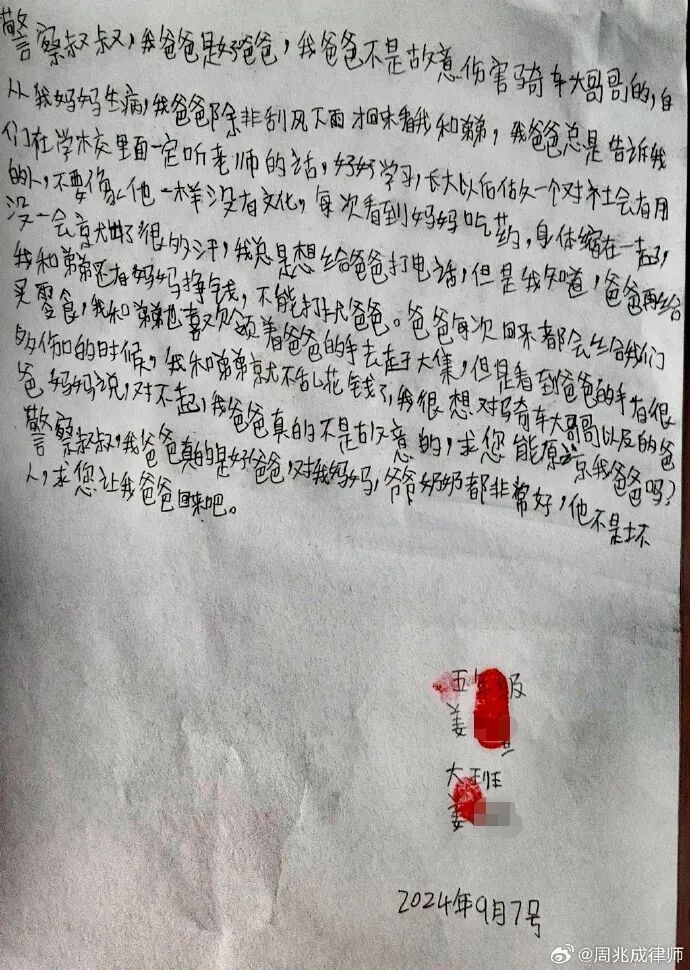 警察叔叔，我爸爸是好爸爸，我爸爸不是故意伤害骑车大哥哥的，自
从我妈妈生病，我爸爸除非刮风下雨才回来看我和弟弟，我爸爸总是告诉我
们在学校里面一定听老师的话，好好学习，长大以后做一个对社会有用
的人，不要像他一样没有文化，每次看到妈妈吃药，身体缩在一起，
没一会就出了很多汗，我总是想给爸爸打电话，但是我知道，爸爸再给
我和弟弟还有妈妈挣钱，不能打扰爸爸。爸爸每次回来都会给我们
买零食，我和弟弟也喜欢领着爸爸的手去赶大集，但是看到爸爸的手有很
多伤口的时候，我和弟弟就不乱花钱了，我很想对骑车大哥哥以及的爸
爸妈妈说，对不起，我爸爸真的不是故意的，求您能原谅我爸爸吗？
警察叔叔，我爸爸真的是好爸爸，对我妈妈，爷爷奶奶都非常好，他不是坏
人，求您让我爸爸回来吧。
五年级
姜
大班
姜
2024年9月7号
@周兆成律师